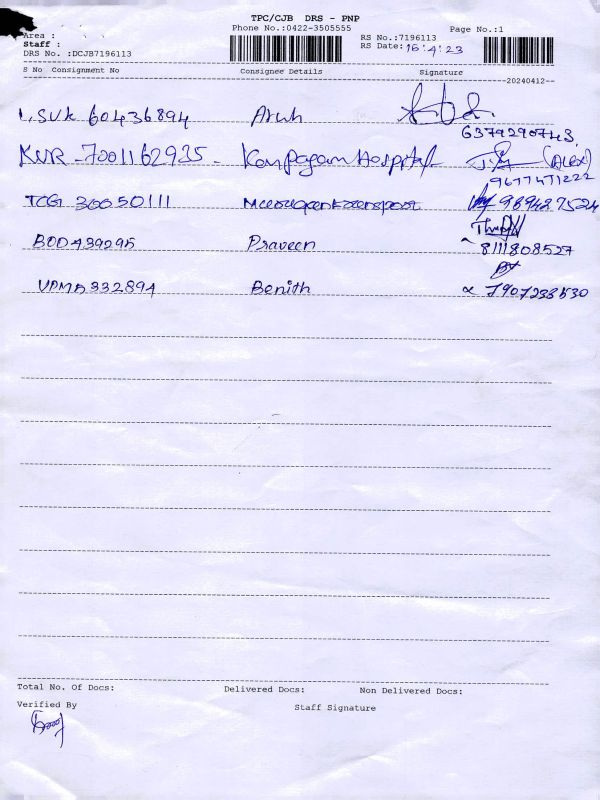 TPC/CJB DRS - PNP
Phone No.:0422-3505555 Page No.:1
Area : RS No.:7196113
Staff : RS Date: 16.4.23
DRS No. :DCJB7196113
S No Consignment No Consignee Details Signature
--20240412--
1, SVK 60436894 Arun
6379290743
KNR - 7001162935 - Konpagam Hospital (Alex)
9677471222
TCG 30050111 989487524
BOD439295 Praveen 8111808527
VPMA332894 Benith 7907233530
Total No. Of Docs: Delivered Docs: Non Delivered Docs:
Verified By Staff Signature